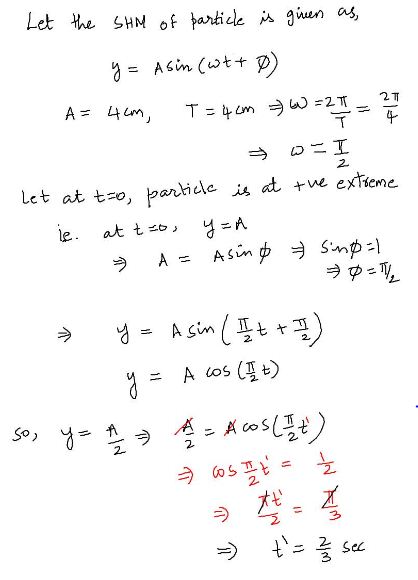 Let the SHM of particle is given as,
y = A sin (ωt + ∅)
A = 4 cm, T = 4 cm ⇒ ω = 2π/T = 2π/4
⇒ ω = π/2
Let at t=0, particle is at +ve extreme
ie. at t=0, y=A
⇒ A = A sin ∅ ⇒ Sin ∅ = 1
⇒ ∅ = π/2
⇒ y = A sin (π/2 t + π/2)
y = A cos (π/2 t)
So, y = A/2 ⇒ A/2 = A cos (π/2 t')
⇒ cos π/2 t' = 1/2
⇒ πt'/2 = π/3
⇒ t' = 2/3 sec